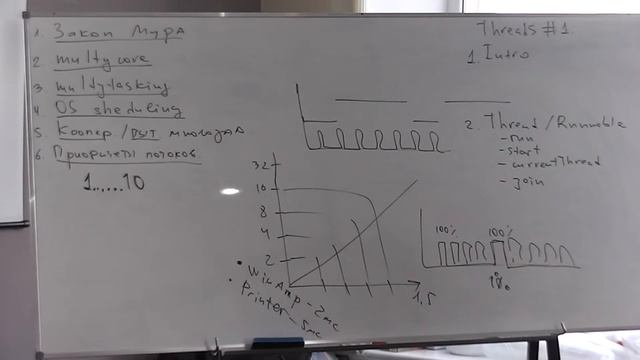 1. Закон Мура
2 multycore
3 multytasking
4 OS sheduling
5 Коопер./выт многозад
6. Приоритеты потоков
1.....10
Threads #1.
1. Intro
2. Thread / Runnable
- run
- start
- currentThread
- join
32
10
8
4
2
1,5
• WinAmp - 2mc
• Printer - 5mc
100%
100%
1%